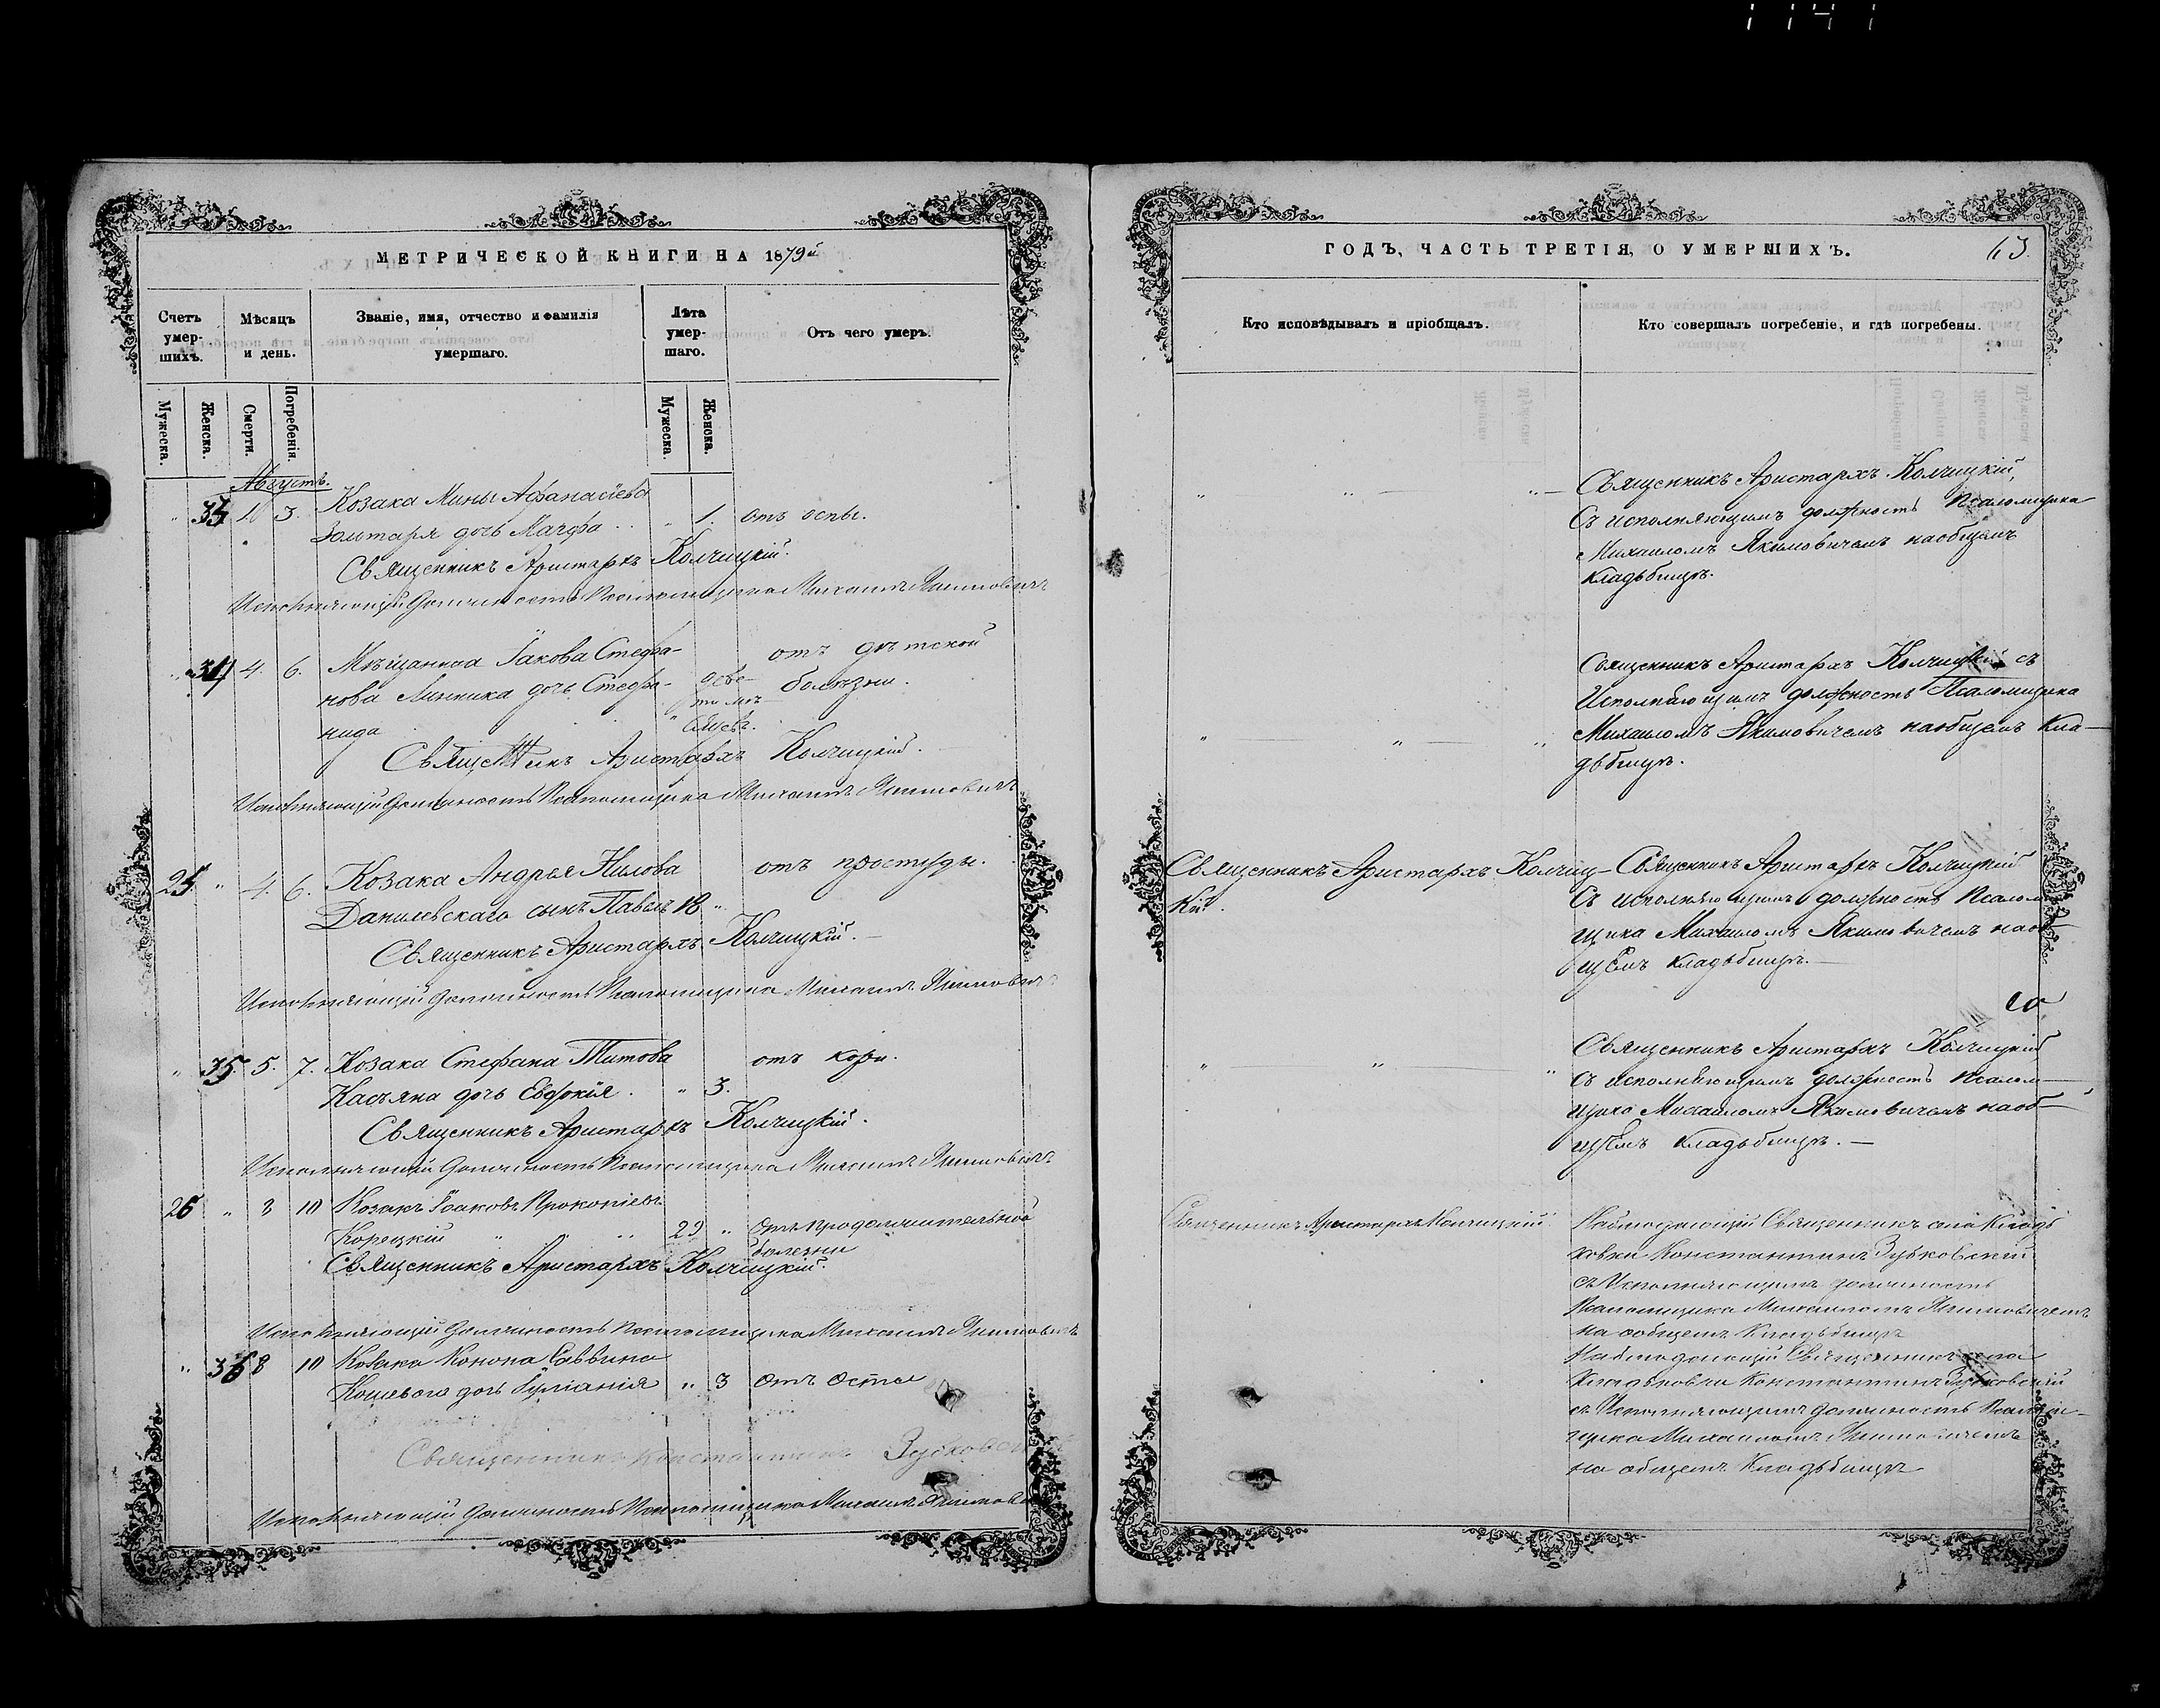 1141
МЕТРИЧЕСКОЙ КНИГИ НА 1879й
Счетъ умер-
шихъ.
Мѣсяцъ
и день.
Званіе, имя, отчество и фамилія
умершаго.
Лѣта
умер-
шаго.
Отъ чего умеръ.
Мужеска.
Женска.
Смерти.
Погребенія.
Мужеска.
Женска.
Августъ.
" 33 3. Козака Мины Афанасіева
Золтаря дочь Марфа " 1. отъ оспы.
Священникъ Аристархъ Колчицкій.
Исполняющій Должность Псаломщика Михаилъ Якимовичъ
" 34 4. 6. Мѣщанина Іакова Стефа- отъ дѣтской
нова Линника дочь Стефа- болѣзни.
нида " мѣсяцъ.
Священникъ Аристархъ Колчицкій.
Исполняющій Должность Псаломщика Михаилъ Якимовичъ
25 " 4. 6. Козака Андрея Нилова отъ простуды.
Данилевскаго сынъ Павелъ 18 "
Священникъ Аристархъ Колчицкій.
Исполняющій должность Псаломщика Михаилъ Якимовичъ
" 35. 5. 7. Козака Стефана Титова отъ кори.
Касяна дочь Евдокія. " 3.
Священникъ Аристархъ Колчицкій.
Исполняющій Должность Псаломщика Михаилъ Якимовичъ
26 " 8 10 Козакъ Іаковъ Прокопіевъ
Корецкій " " " 29 " Отъ продолжительной
болезни
Священникъ Аристархъ Колчицкій.
Исполняющій Должность Псаломщика Михаилъ Якимовичъ
" 36 8 10 Козака Конона Саввина
Кошевого дочь Іуліанія " 3 Отъ Оспы
Священникъ Константинъ Зубковскій
Исполняющій Должность Псаломщика Михаилъ Якимовичъ
ГОДЪ, ЧАСТЬ ТРЕТІЯ, О УМЕРШИХЪ.
63.
Кто исповѣдывалъ и пріобщалъ.
Кто совершалъ погребеніе, и гдѣ погребены.
" " " Священникъ Аристархъ Колчицкій,
Съ исполняющимъ должность Псаломщика
Михаиломъ Якимовичемъ наобщемъ
кладьбищѣ.
Священникъ Аристархъ Колчицкій съ
Исполняющимъ должность Псаломщика
" " " Михаиломъ Якимовичемъ наобщемъ Кла-
дьбищѣ.
Священникъ Аристархъ Колчиц-
кій.
Священникъ Аристархъ Колчицкій
Съ исполняющимъ должность Псалом-
щика Михаиломъ Якимовичемъ наоб-
щемъ кладьбищѣ.
" " " Священникъ Аристархъ Колчицкій
Съ исполняющимъ должность Псалом-
щика Михаиломъ Якимовичемъ наоб-
щемъ кладьбищѣ.
Священникъ Аристархъ Колчицкій
Наблюдающій Священникъ села
Константинъ Зубковскій
съ Исполняющимъ должность
Псаломщика Михаиломъ Якимовичемъ
на общемъ Кладьбищѣ
Наблюдающій Священникъ села
Константинъ Зубковскій
съ Исполняющимъ Должность Псалом-
щика Михаиломъ Якимовичемъ
на общемъ Кладьбищѣ